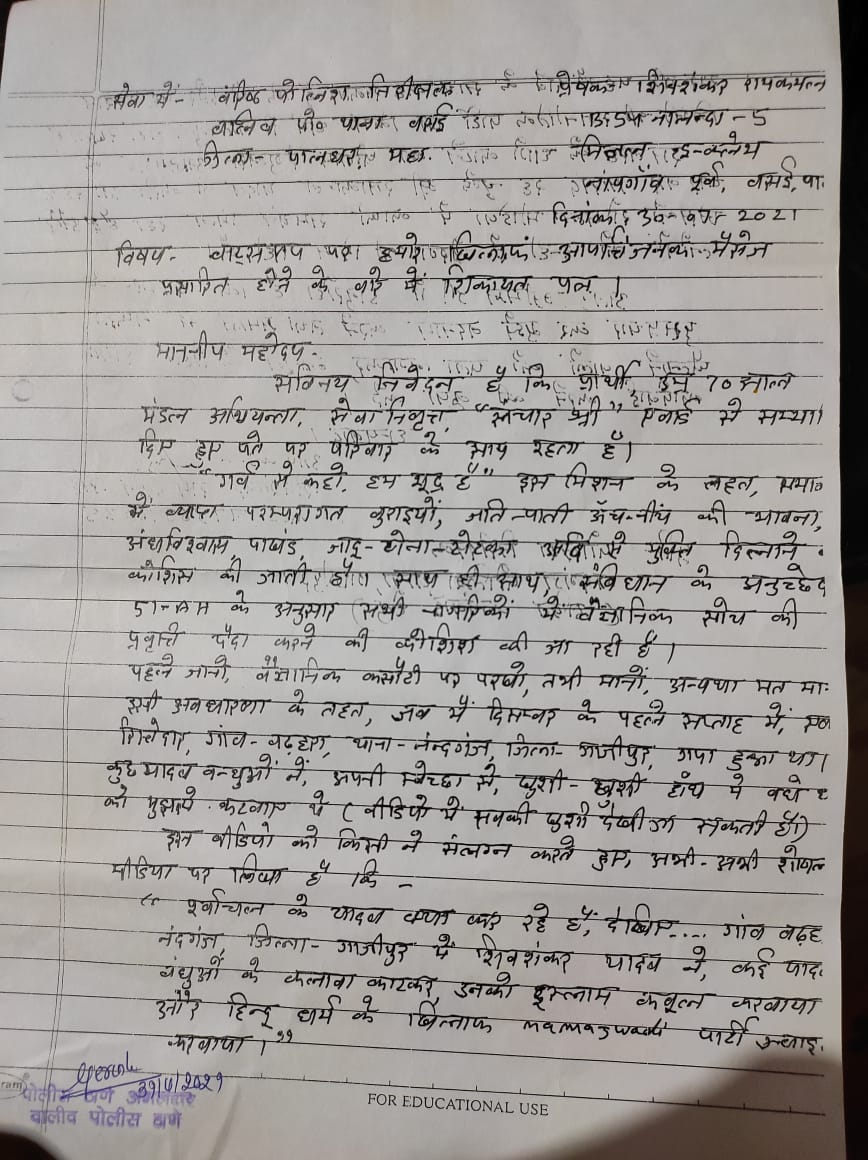 सेवा में - वरिष्ठ पोलिश निरीक्षक प्रेषक शिवशंकर रामकमल
वालिव पो० थाना वसई
जिला - पालघर, महा.
पूर्व, वसई, पा
दिनांक 2021
विषय - वाट्सअप पर हमारे खिलाफ आपत्तिजनक मैसेज
प्रसारित होने के बारे में शिकायत पत्र ।
माननीय महोदय.
सविनय निवेदन है कि प्रार्थी उम्र 70 साल
मंडल अभियन्ता, सेवा निवृत्त, "संचार श्री" एवार्ड से सम्मा
दिए हुए पते पर परिवार के साथ रहता हूँ।
"गर्व से कहो, हम शूद्र हैं" इस मिशन के तहत, समा
में व्याप्त परम्परागत बुराइयों, जाति-पाती ऊँच-नीच की भावना,
अंधविश्वास, पाखंड, जादू-टोना-टोटका आदि से मुक्ति दिलाने
कोशिस की जाती है। साथ ही साथ, संविधान के अनुच्छेद
51-AH के अनुसार सभी नागरिकों में वैज्ञानिक सोच की
प्रवृत्ति पैदा करने की कोशिश की जा रही है।
पहले जानो, वैज्ञानिक कसौटी पर परखो, तभी मानों, अन्यथा मत मा
इसी अवधारणा के तहत, जब मैं दिसम्बर के पहले सप्ताह में, एक
रिश्तेदार, गांव-बढ़हरा, थाना-नन्दगंज, जिला-गाजीपुर, गया हुआ था।
कुछ यादव बन्धुओं ने, अपनी स्वेच्छा से, खुशी-खुशी हाँथ मे बंधे
को मुझसे कटवाए थे (वीडियो में सबकी खुशी देखी जा सकती है।)
इस वीडियो को किसी ने संलग्न करते हुए, अभी-अभी शोशल
मीडिया पर लिखा है कि -
"पूर्वांचल के यादव क्या कर रहे हैं, देखिए.... गांव बढ़ह
नंदगंज, जिला-गाजीपुर में शिवशंकर यादव ने, कई याद
बंधुओं के कलावा काटकर, उनको इस्लाम कबूल करवाया
और हिन्दू धर्म के खिलाफ पार्टी
करवाया।"
पोलीस ठाणे अंमलदार
वालीव पोलीस ठाणे
FOR EDUCATIONAL USE